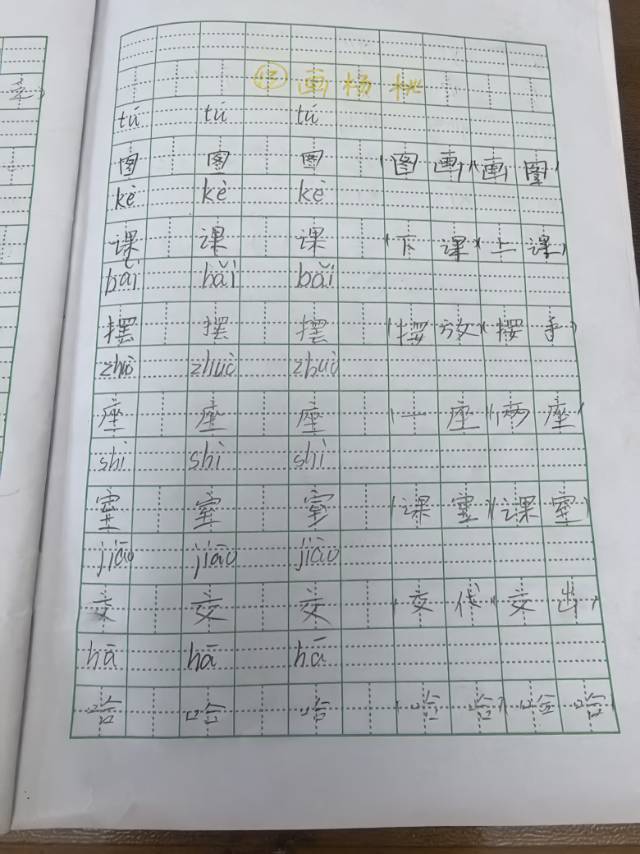 ⑬画杨桃
tú tú tú
图 图 图 (图画)(画图)
kè kè kè
课 课 课 (下课)(上课)
bǎi bǎi bǎi
摆 摆 摆 (摆放)(摆手)
zhuò zhuò zhuò
座 座 座 (一座)(两座)
shì shì shì
室 室 室 (课室)(课室)
jiāo jiāo jiāo
交 交 交 (交代)(交出)
hā hā hā
哈 哈 哈 (哈哈)(哈哈)